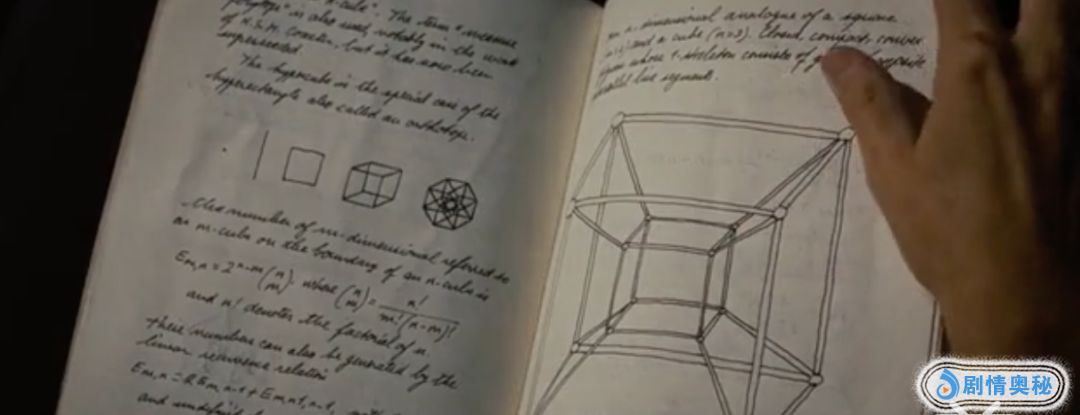 -cube". The term "measure
polytope" is also used, notably in the work
of H.S.M. Coxeter, but it has now been
superseded.
The hypercube is the special case of the
hyperrectangle also called an orthotope.
The number of m-dimensional referred to
an m-cube on the boundary of an n-cube is
Em,n = 2^n-m (n m), where (n m) = n! / m!(n-m)!
and n! denotes the factorial of n.
These numbers can also be generated by the
linear recurrence relation
Em,n = 2Em,n-1 + Em-1,n-1, with
and undefined
an n-dimensional analogue of a square
and a cube (n=3). Closed, compact, convex
figure whose 1-skeleton consists of opposite
parallel line segments.
剧情奥秘